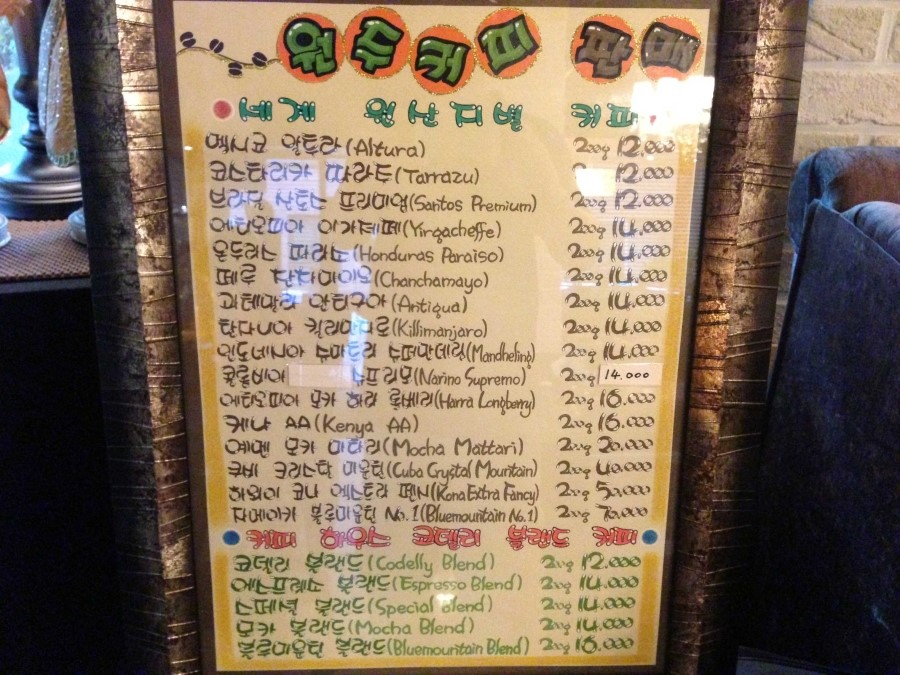 원두커피 판매
세계 원산지별 커피
멕시코 알투라(Altura) 200g 12.000
코스타리카 따라주(Tarrazu) 200g 12.000
브라질 산토스 프리미엄(Santos Premium) 200g 12.000
에티오피아 이가체페(Yirgacheffe) 200g 14.000
온두라스 파라소(Honduras Paraiso) 200g 14.000
페루 찬차마이오(Chanchamayo) 200g 14.000
과테말라 안티구아(Antigua) 200g 14.000
탄자니아 킬리만자로(Killimanjaro) 200g 14.000
인도네시아 수마트라 수퍼만데링(Mandheling) 200g 14.000
콜롬비아 수프리모(Narino Supremo) 200g 14.000
에티오피아 모카 하라 롱베리(Harra Longberry) 200g 16.000
케냐 AA(Kenya AA) 200g 16.000
예멘 모카 마타리(Mocha Mattari) 200g 20.000
쿠바 크리스탈 마운틴(Cuba Crystal Mountain) 200g 40.000
하와이 코나 엑스트라 팬시(Kona Extra Fancy) 200g 50.000
자메이카 블루마운틴 No.1(Bluemountain No.1) 200g 70.000
커피 하우스 코델리 블랜드 커피
코델리 블랜드(Codelly Blend) 200g 12.000
에스프레소 블랜드(Espresso Blend) 200g 14.000
스페셜 블랜드(Special Blend) 200g 14.000
모카 블랜드(Mocha Blend) 200g 14.000
블루마운틴 블랜드(Bluemountain Blend) 200g 16.000